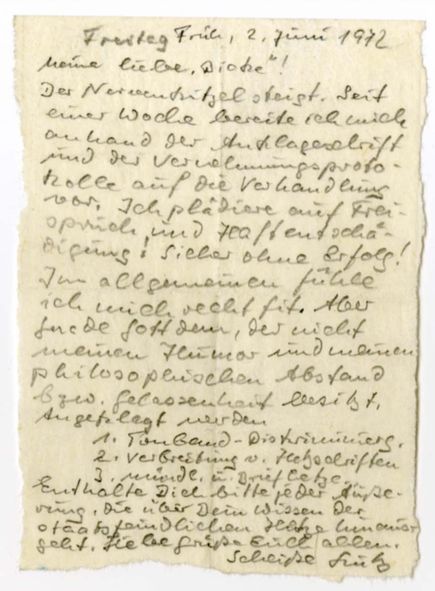 Freitag Früh, 2. Juni 1972
Meine liebe "Dicke"!
Der Nervenkitzel steigt. Seit
einer Woche bereite ich mich
anhand der Anklageschrift
und der Vernehmungsproto-
kolle auf die Verhandlung
vor. Ich plädiere auf Frei-
spruch und Haftentschä-
digung! Sicher ohne Erfolg!
Im allgemeinen fühle
ich mich recht fit. Aber
Gnade Gott dem, der nicht
meinen Humor und meinen
philosophischen Abstand
bzw. Gelassenheit besitzt.
Angeklagt werden
1. Tonband-Diskriminierg.
2. Verbreitung v. Hetzschriften
3. mündl. u. Brief
Enthalte Dich bitte jeder Äuße-
rung, die über Dein Wissen der
staatsfeindlichen Hetze hinaus
geht. Liebe Grüße Euch allen.
Scheiße